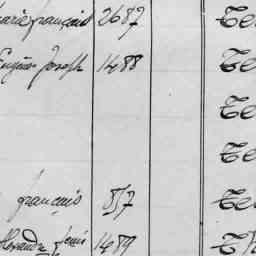 Marie françois 2687 Te
Eugène Joseph 1488 Te
Te
Te
françois 857 Te
Alexandre Denis 1489 Th